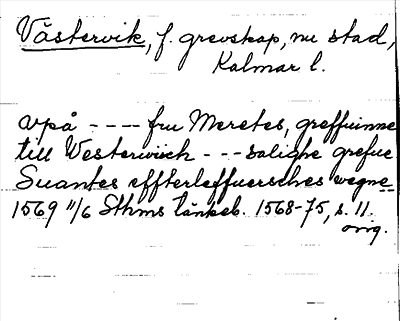 Västervik, f. grevskap, nu stad,
Kalmar l.
vpå - - - - fru Meretes, greffuinne
till Westerwiich - - - salighe grefue
Suantes effterleffuersches wegne
1569 11/6 Sthms tänkeb. 1568-75, s. 11.
orig.